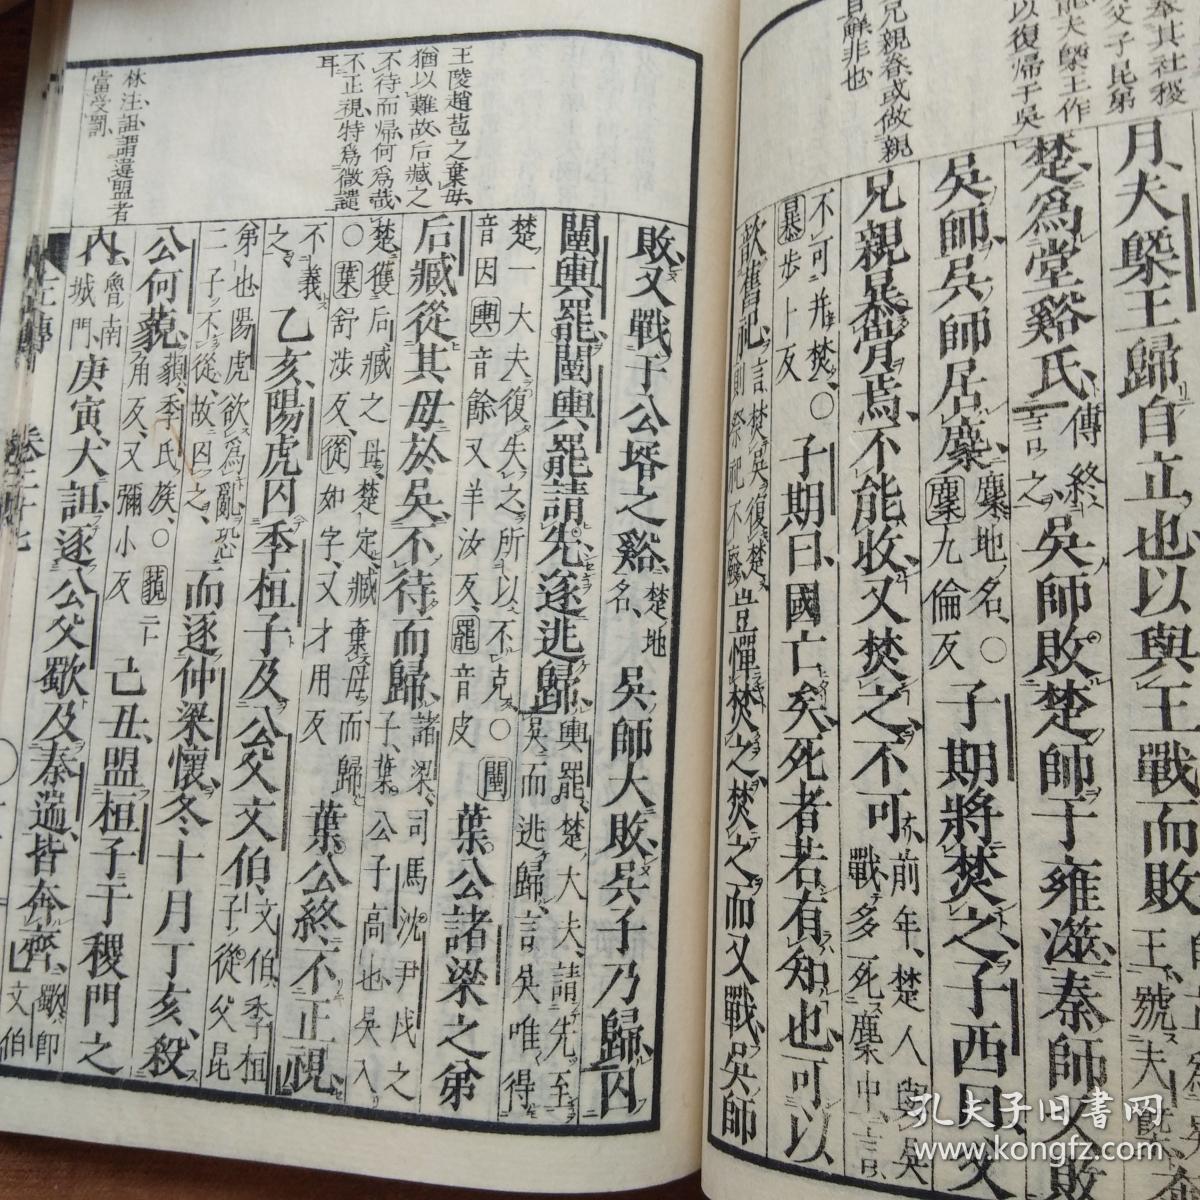 月夫槩王歸自立也以與王戰而敗
王號夫
楚爲堂谿氏傳終言之吳師敗楚師于雍澨秦師又敗
吳師吳師居麇麇地名〇麇九倫反子期將焚之子西曰父
兄親暴骨焉不能收又焚之不可前年楚人與吳戰多死麇中言
不可并焚〇暴步卜反子期曰國亡矣死者若有知也可以
歆舊祀言焚吳復楚則祭祀不廢豈憚焚之焚之而又戰吳師
敗又戰于公壻之谿楚地名吳師大敗吳子乃歸囚
闉輿罷闉輿罷請先遂逃歸輿罷楚大夫請先至吳而逃歸言吳唯得
楚一大夫復失之所以不克〇闉音因輿音餘又羊汝反罷音皮葉公諸梁之弟
后臧從其母於吳不待而歸諸梁司馬沈尹戌之子葉公子高也吳入
楚獲后臧之母楚定臧棄母而歸〇葉舒涉反從如字又才用反葉公終不正視
不義之乙亥陽虎囚季桓子及公父文伯文伯季桓子從父昆
弟也陽虎欲爲亂恐二子不從故囚之而逐仲梁懷冬十月丁亥殺
公何藐藐季氏族〇藐亡角反又彌小反己丑盟桓子于稷門之
內魯南城門庚寅大詛逐公父歜及秦遄皆奔齊歜即文伯也
兄親眷或做親
王陵趙苞之棄毋
猶以難故后臧之
不待而歸何爲哉
不正視特爲微譴
耳
林注詛謂違盟者
當受罰
左傳
卷二十七
孔夫子旧書网
www.kongfz.com